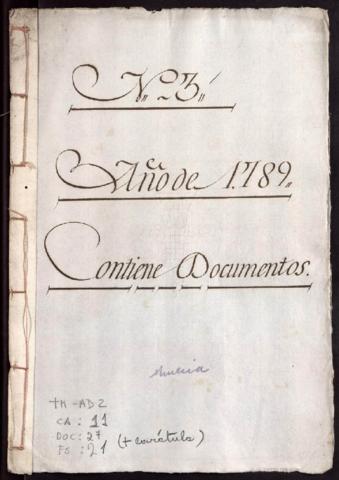 N.º 3.
Año de 1789.
Contiene Documentos.
TH-AD 2
CA : 11
DOC : 27
FS : 21
(+ carátula)